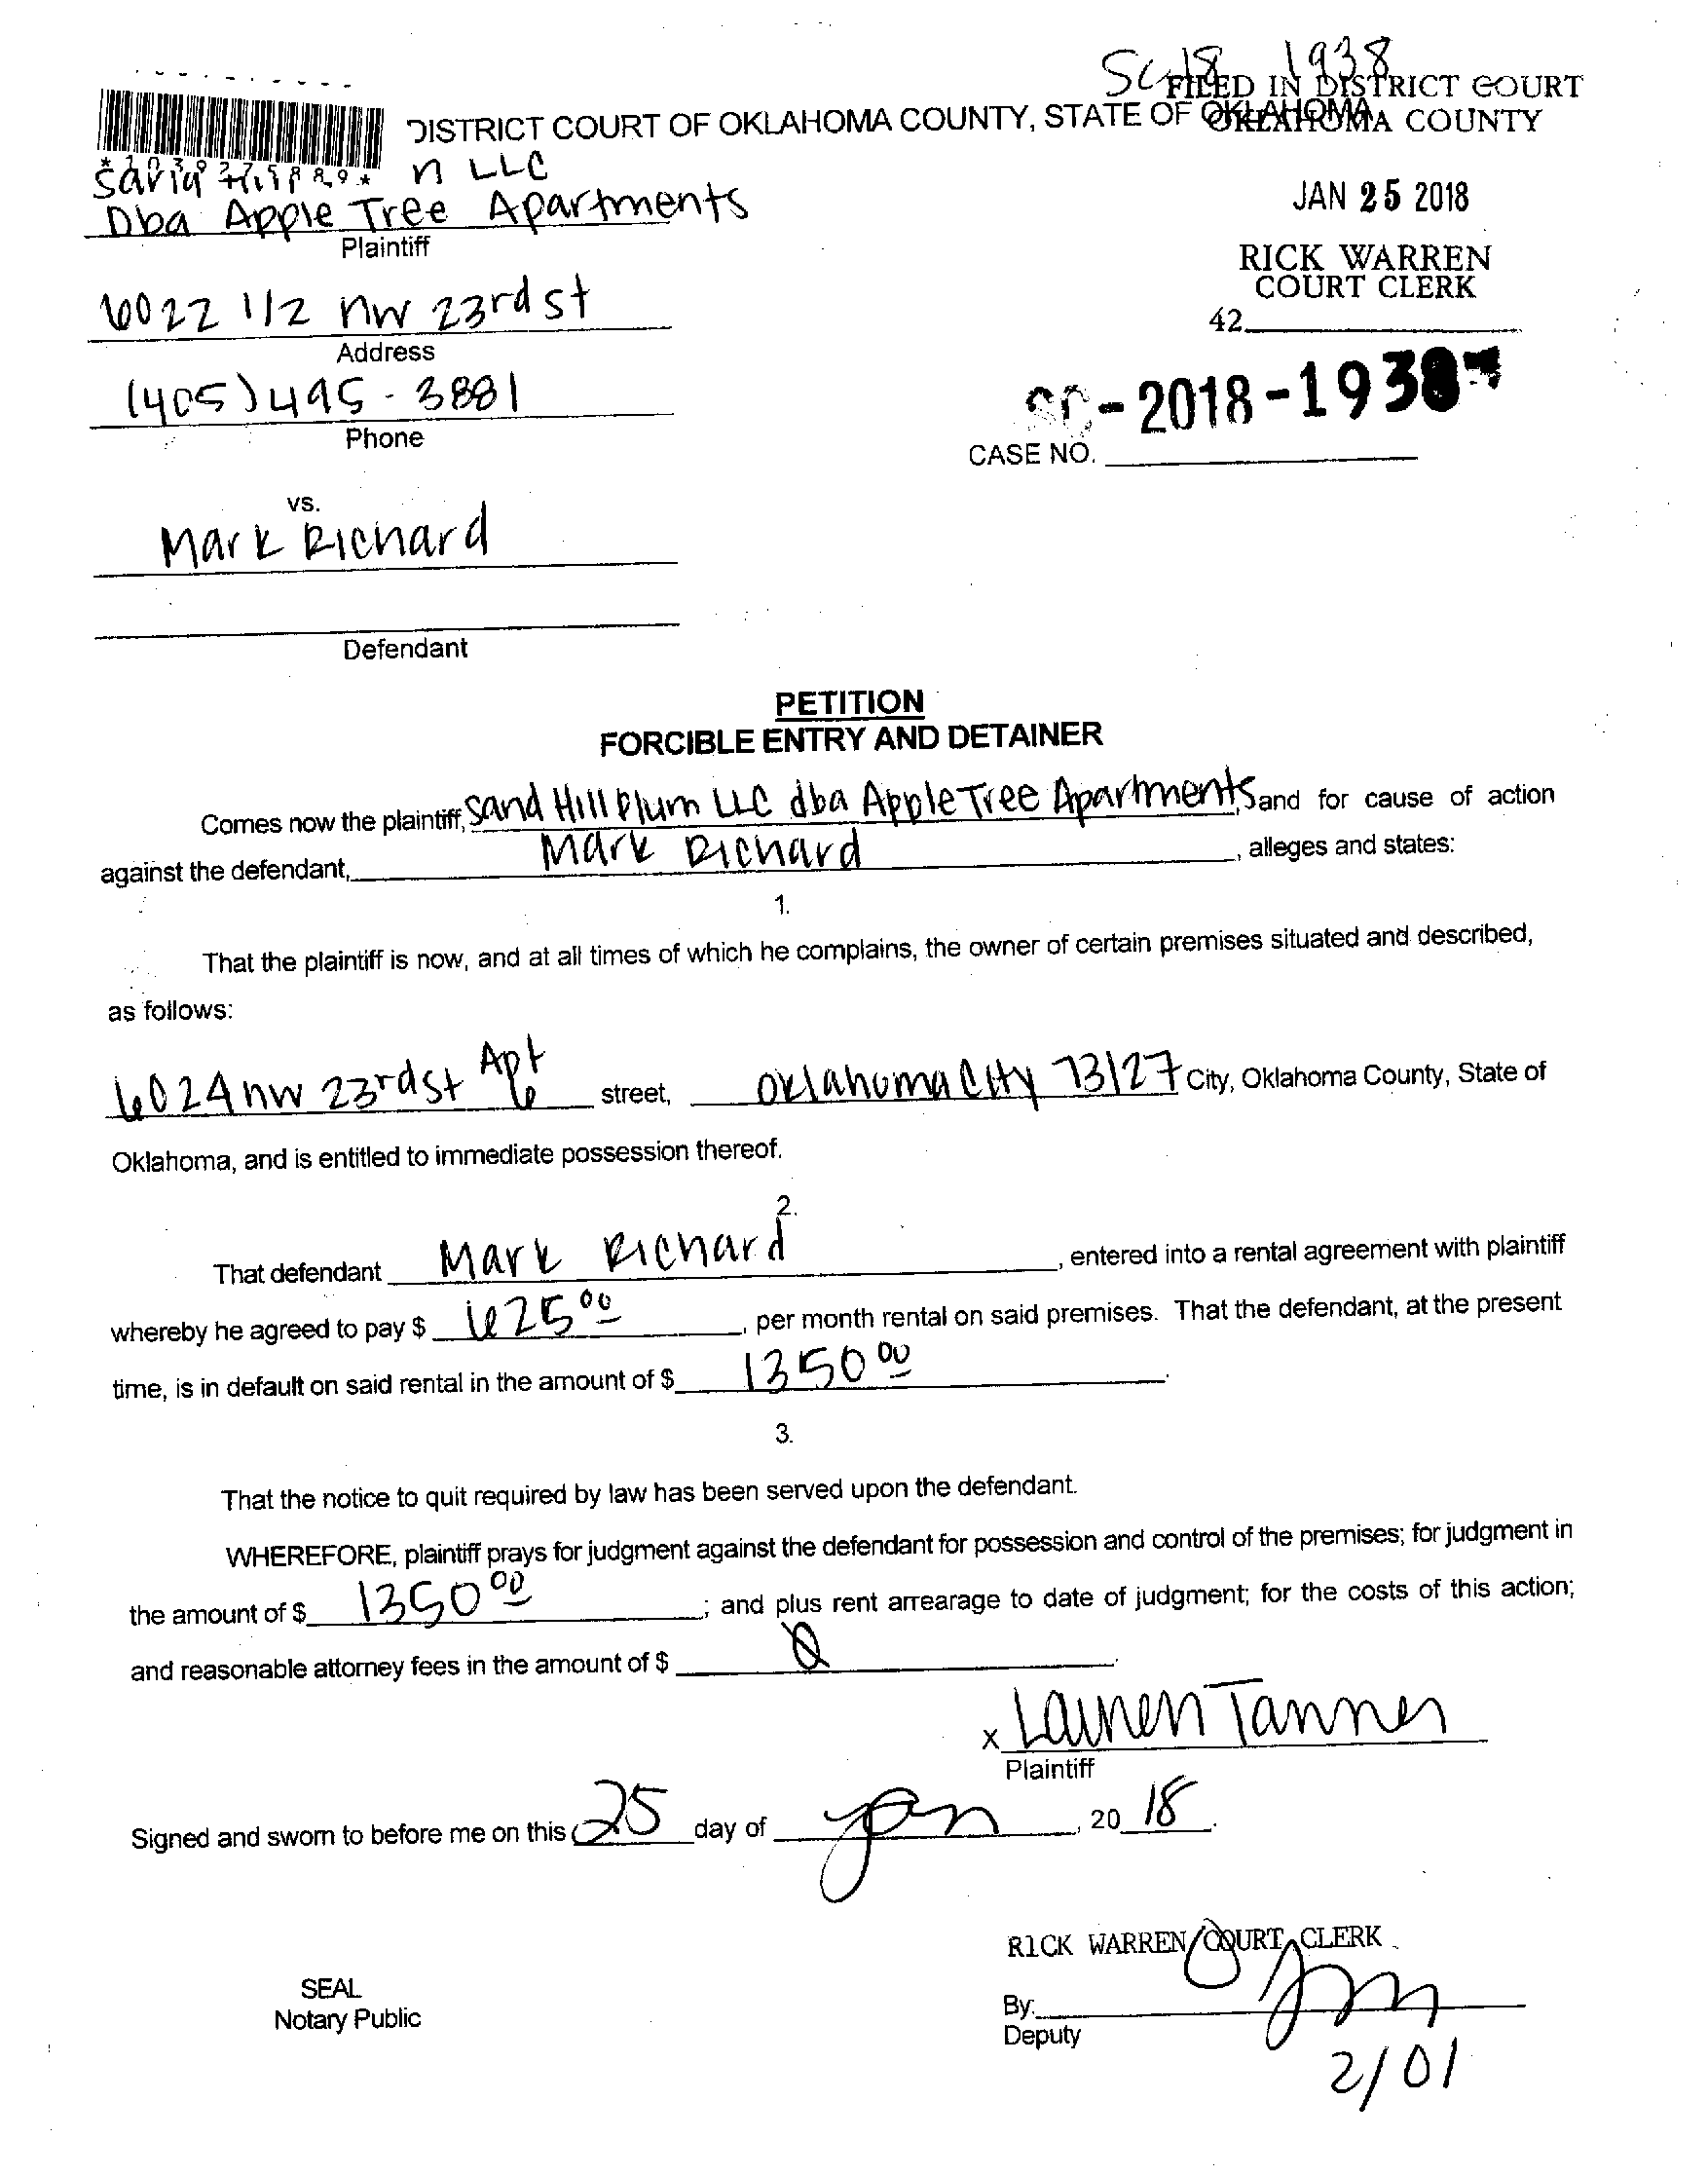 SC-18 1938
FILED IN DISTRICT COURT
DISTRICT COURT OF OKLAHOMA COUNTY, STATE OF OKLAHOMA
OKLAHOMA COUNTY
n LLC
Dba Apple Tree Apartments
Plaintiff
JAN 25 2018
RICK WARREN
COURT CLERK
42
6022 1/2 NW 23rd st
Address
(405) 495-3881
Phone
SC-2018-1938
CASE NO.
vs.
Mark Richard
Defendant
PETITION
FORCIBLE ENTRY AND DETAINER
Comes now the plaintiff, Sand Hill Plum LLC dba Apple Tree Apartments, and for cause of action
against the defendant, Mark Richard, alleges and states:
1.
That the plaintiff is now, and at all times of which he complains, the owner of certain premises situated and described,
as follows:
6024 NW 23rd st Apt 6 street, Oklahoma City 73127 City, Oklahoma County, State of
Oklahoma, and is entitled to immediate possession thereof.
2.
That defendant Mark Richard, entered into a rental agreement with plaintiff
whereby he agreed to pay $ 625 00, per month rental on said premises. That the defendant, at the present
time, is in default on said rental in the amount of $ 1350 00.
3.
That the notice to quit required by law has been served upon the defendant.
WHEREFORE, plaintiff prays for judgment against the defendant for possession and control of the premises; for judgment in
the amount of $ 1350 00; and plus rent arrearage to date of judgment; for the costs of this action;
and reasonable attorney fees in the amount of $ 0.
x Lauren Tanner
Plaintiff
Signed and sworn to before me on this 25 day of Jan, 20 18.
RICK WARREN COURT CLERK
SEAL
Notary Public
By:
Deputy
2/01